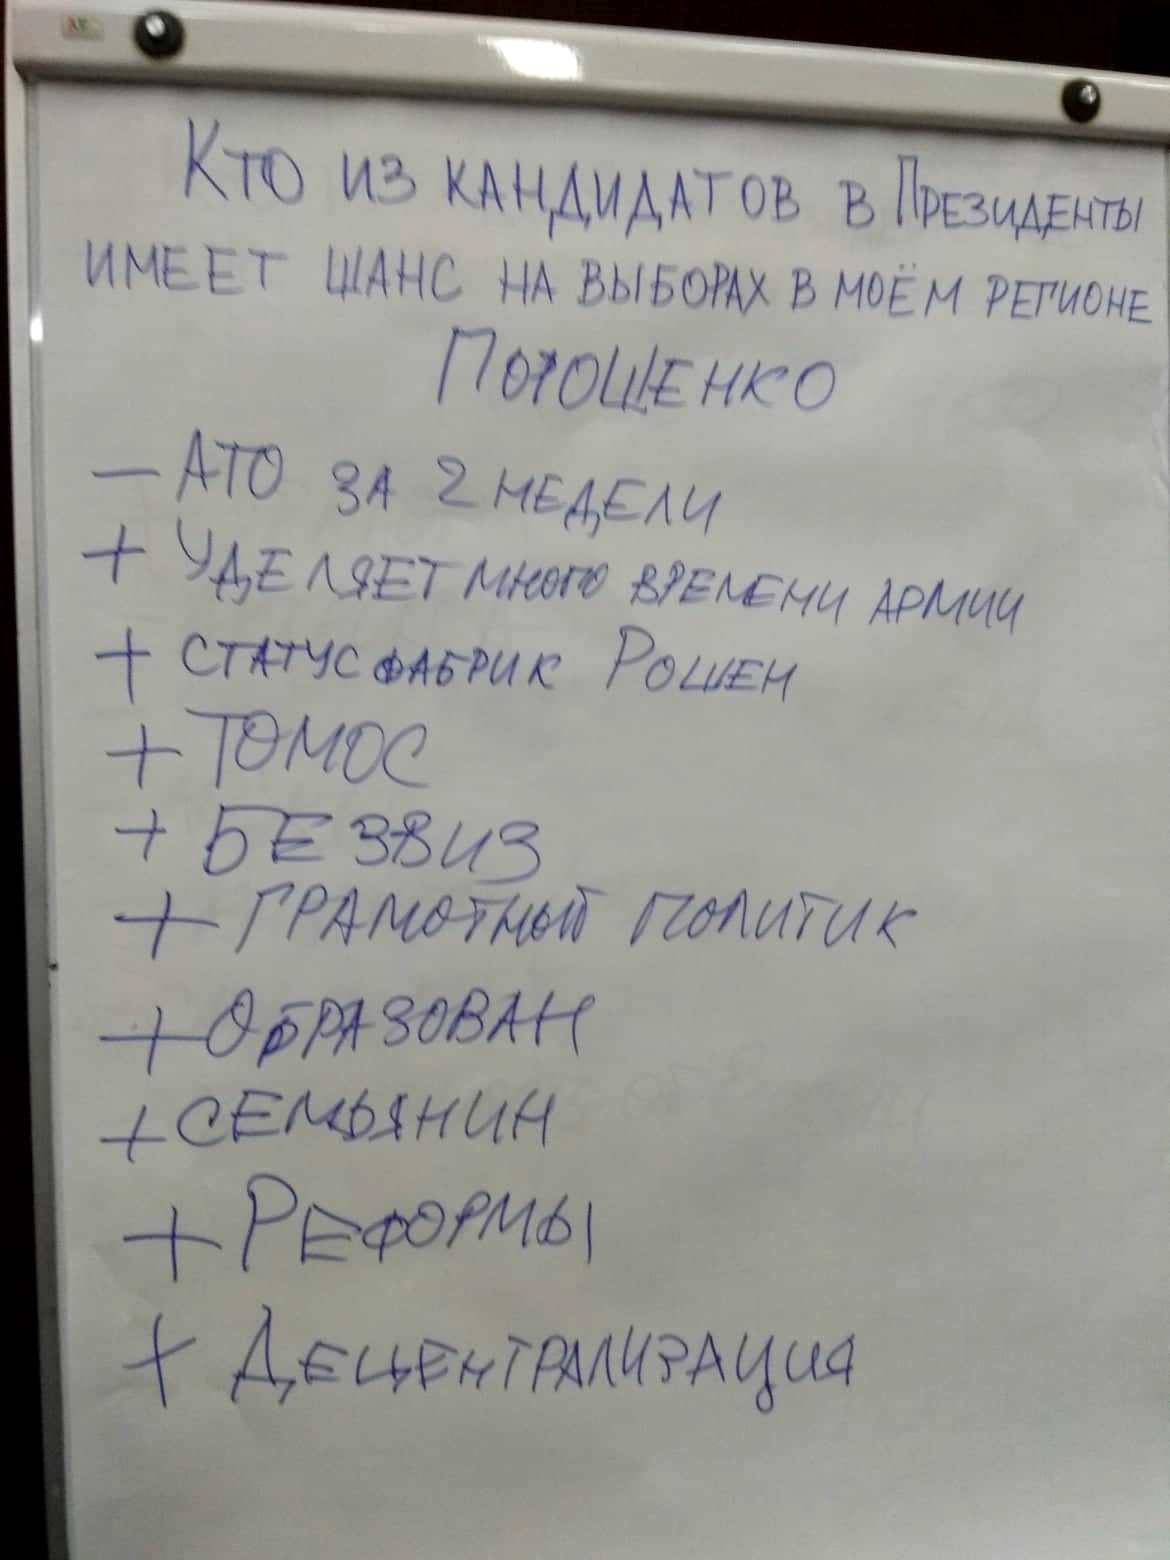 Кто из кандидатов в Президенты
имеет шанс на выборах в моём регионе
Порошенко
– АТО за 2 недели
+ Уделяет много времени армии
+ статус фабрик Рошен
+ Томос
+ Безвиз
+ грамотный политик
+ Образован
+ семьянин
+ Реформы
+ Децентрализация